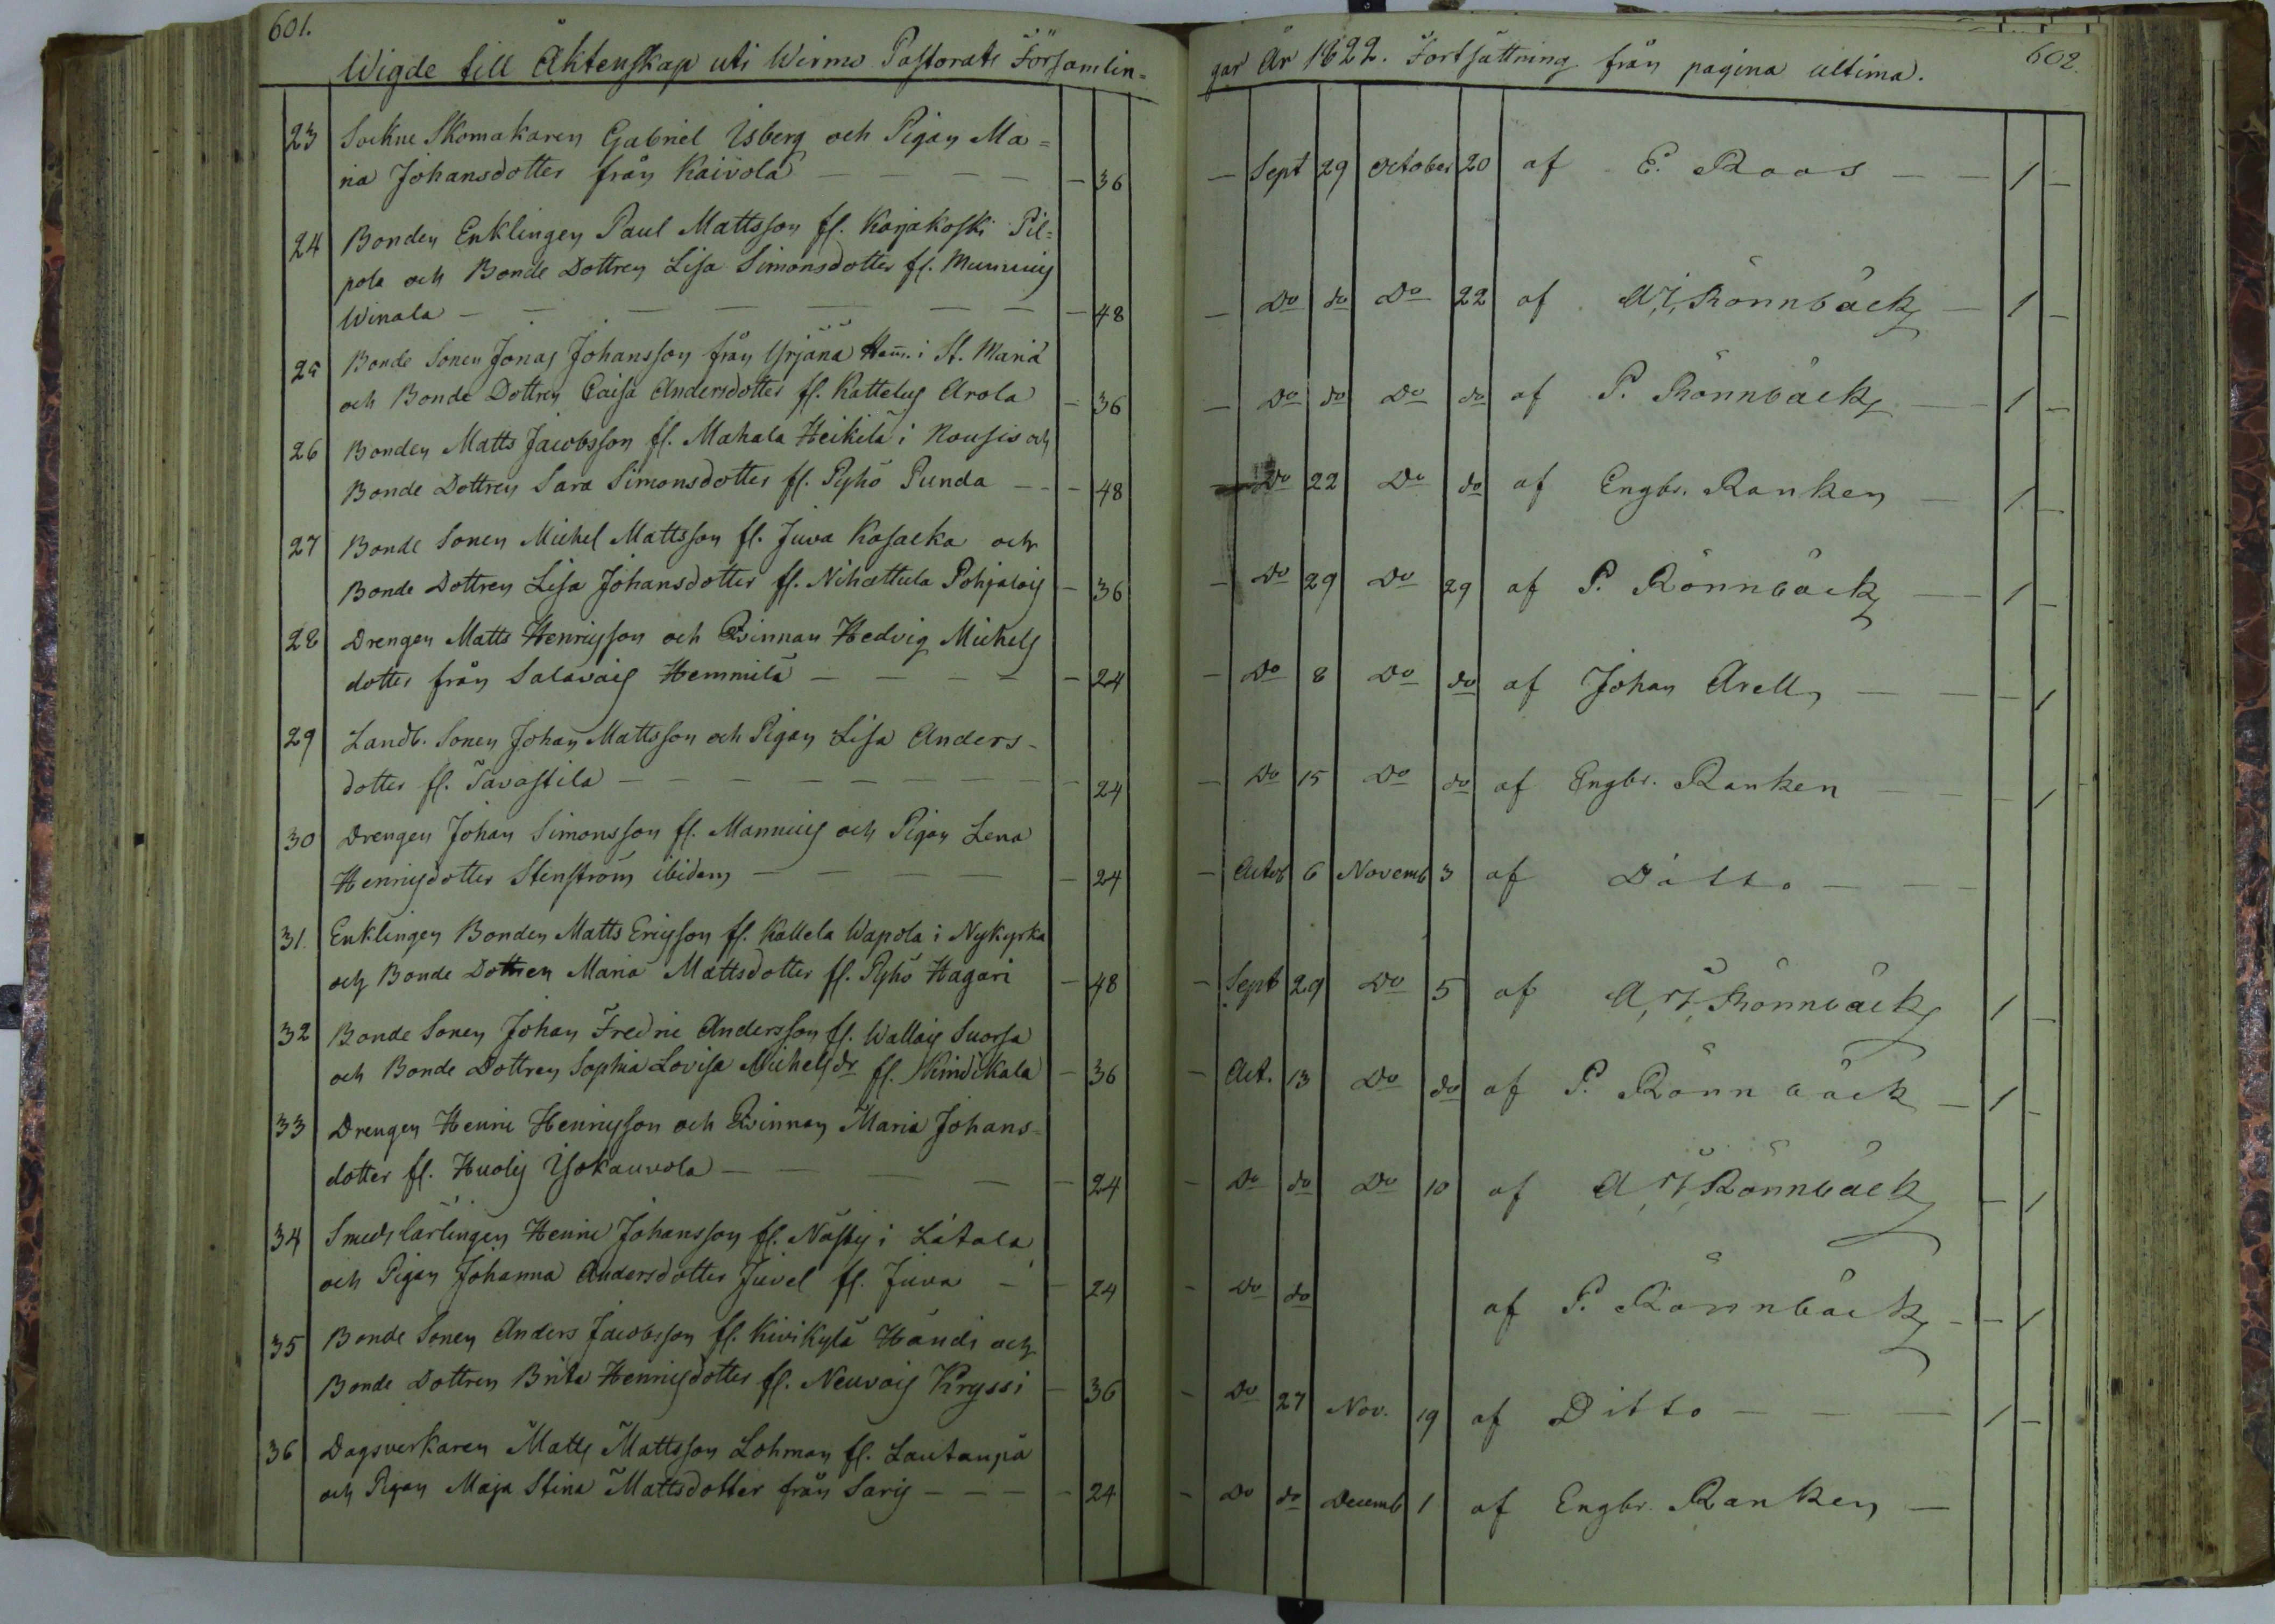 601.
Wigde till Äktenskap uti Wirmo Pastorats Församlin=
23 Sockne Skomakaren Gabriel Isberg och Pigan Ma=
ria Johansdotter från Kaivola — — — — — 36
24 Bonden Enklingen Paul Mattsson fl. Karjakoski Pil=
pola och Bonde Dottren Lisa Simonsdotter fl.
Winala — — — — — — 48
25 Bonde Sonen Jonas Johansson från Yrjänä Hem. i St. Mariä
och Bonde Dottren Caisa Andersdotter fl. Kattelus Arola — 36
26 Bonden Matts Jacobsson fl. Mahala Heikilä i Nousis och
Bonde Dottren Sara Simonsdotter fl. Pyhö Punda — — 48
27 Bonde Sonen Michel Mattsson fl. Juva Kasacka och
Bonde Dottren Lisa Johansdotter fl. Nihattula Pohjalais — 36
28 Drengen Matts Henricsson och Qvinnan Hedvig Michels
dotter från Salavais Hemmilä — — — — — 24
29 Landb. Sonen Johan Mattsson och Pigan Lisa Anders-
dotter fl. Tavastila — — — — — — — 24
30 Drengen Johan Simonsson fl. Mannuis och Pigan Lena
Henricsdotter Stenström ibidem — — — — — 24
31. Enklingen Bonden Matts Ericsson fl. Kallela Wapola i Nykyrka
och Bonde Dottren Maria Mattsdotter fl. Pyhö Hagari — 48
32 Bonde Sonen Johan Fredric Andersson fl. Wallais Suorsa
och Bonde Dottren Sophia Lovisa Michelsdr fl. Hindikala — 36
33 Drengen Henric Henricsson och Qvinnan Maria Johans=
dotter fl. Huolis Isokauvola — — — — — 24
34 Smeds lärlingen Henric Johansson fl. Nästis i Létala
och Pigan Johanna Andersdotter Juvel fl. Juva — — 24
35 Bonde Sonen Anders Jacobsson fl. Kivikylä Händi och
Bonde Dottren Brita Henricsdotter fl. Neuvois Kryssi — 36
36 Dagsverkaren Matts Mattsson Lohman fl. Lautanpä
och Pigan Maja Stina Mattsdotter från Saris — — — 24
gar År 1822. Fortsättning från pagina ultima. 602.
— Sept 29 October 20 af E. Roos — — 1 —
— Do do Do 22 af A, F, Rönnbäck — 1 —
— Do do Do do af P. Rönnbäck — — 1 —
— Do 22 Do do af Engbr. Ranken — 1 —
— Do 29 Do 29 af P. Rönnbäck — — 1 —
— Do 8 Do do af Johan Arell — — — 1
— Do 15 Do do af Engbr. Ranken — — — 1
— Octob 6 Novemb 3 af Ditto — — —
— Sept 29 Do 5 af A, F, Rönnbäck 1 —
— Oct. 13 Do do af P. Rönnbäck — 1 —
— Do do Do 10 af A, F, Rönnbäck — 1
— Do do af P. Rönnbäck — — 1
— Do 27 Nov. 19 af Ditto — — — 1 —
— Do do Decemb 1 af Engbr. Ranken —